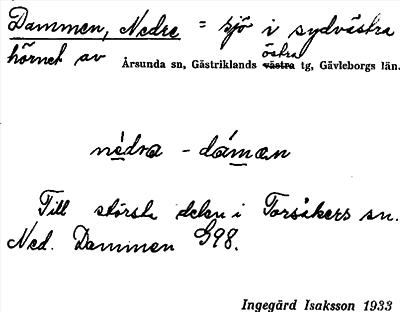 Dammen, Nedre = sjö i sydvästra
hörnet av Årsunda sn, Gästriklands västra östra tg, Gävleborgs län.
nèdra - dámæn
Till största delen i Torsåkers sn.
Ned. Dammen G98.
Ingegärd Isaksson 1933